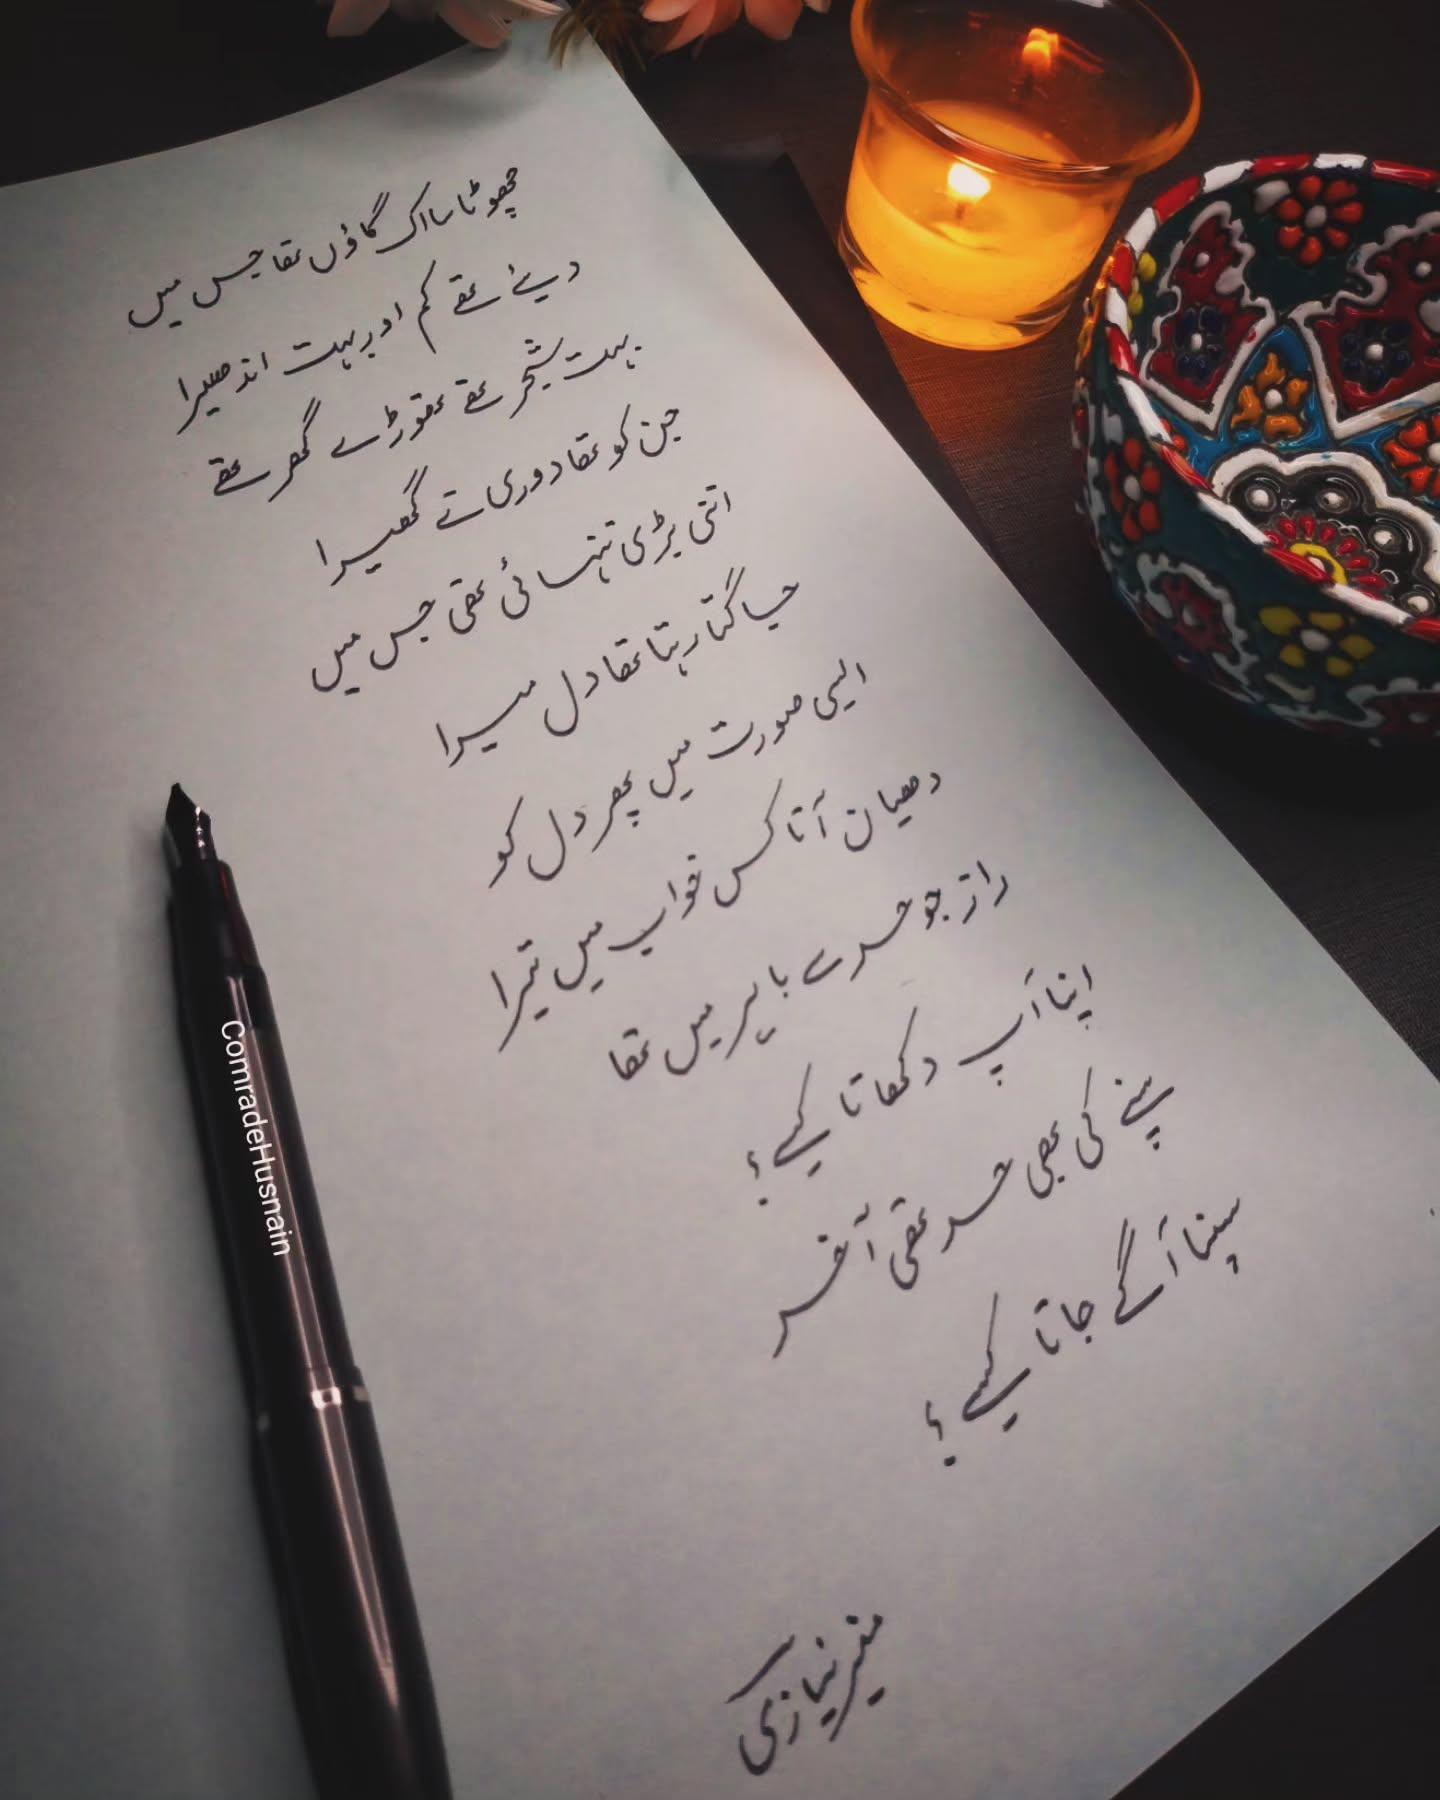 چھوٹا سا اک گاؤں تھا جس میں
دیئے تھے کم اور بہت اندھیرا
بہت شجر تھے تھوڑے گھر تھے
جن کو تھا دوری نے گھیرا
اتنی بڑی تنہائی تھی جس میں
جاگتا رہتا تھا دل میرا
ایسی صورت میں پھر دل کو
دھیان آتا کس خواب میں تیرا
راز جو حد سے باہر میں تھا
اپنا آپ دکھاتا کیسے؟
سپنے کی بھی حد تھی آخر
سپنا آگے جاتا کیسے؟
منیر نیازی
ComradeHusnain